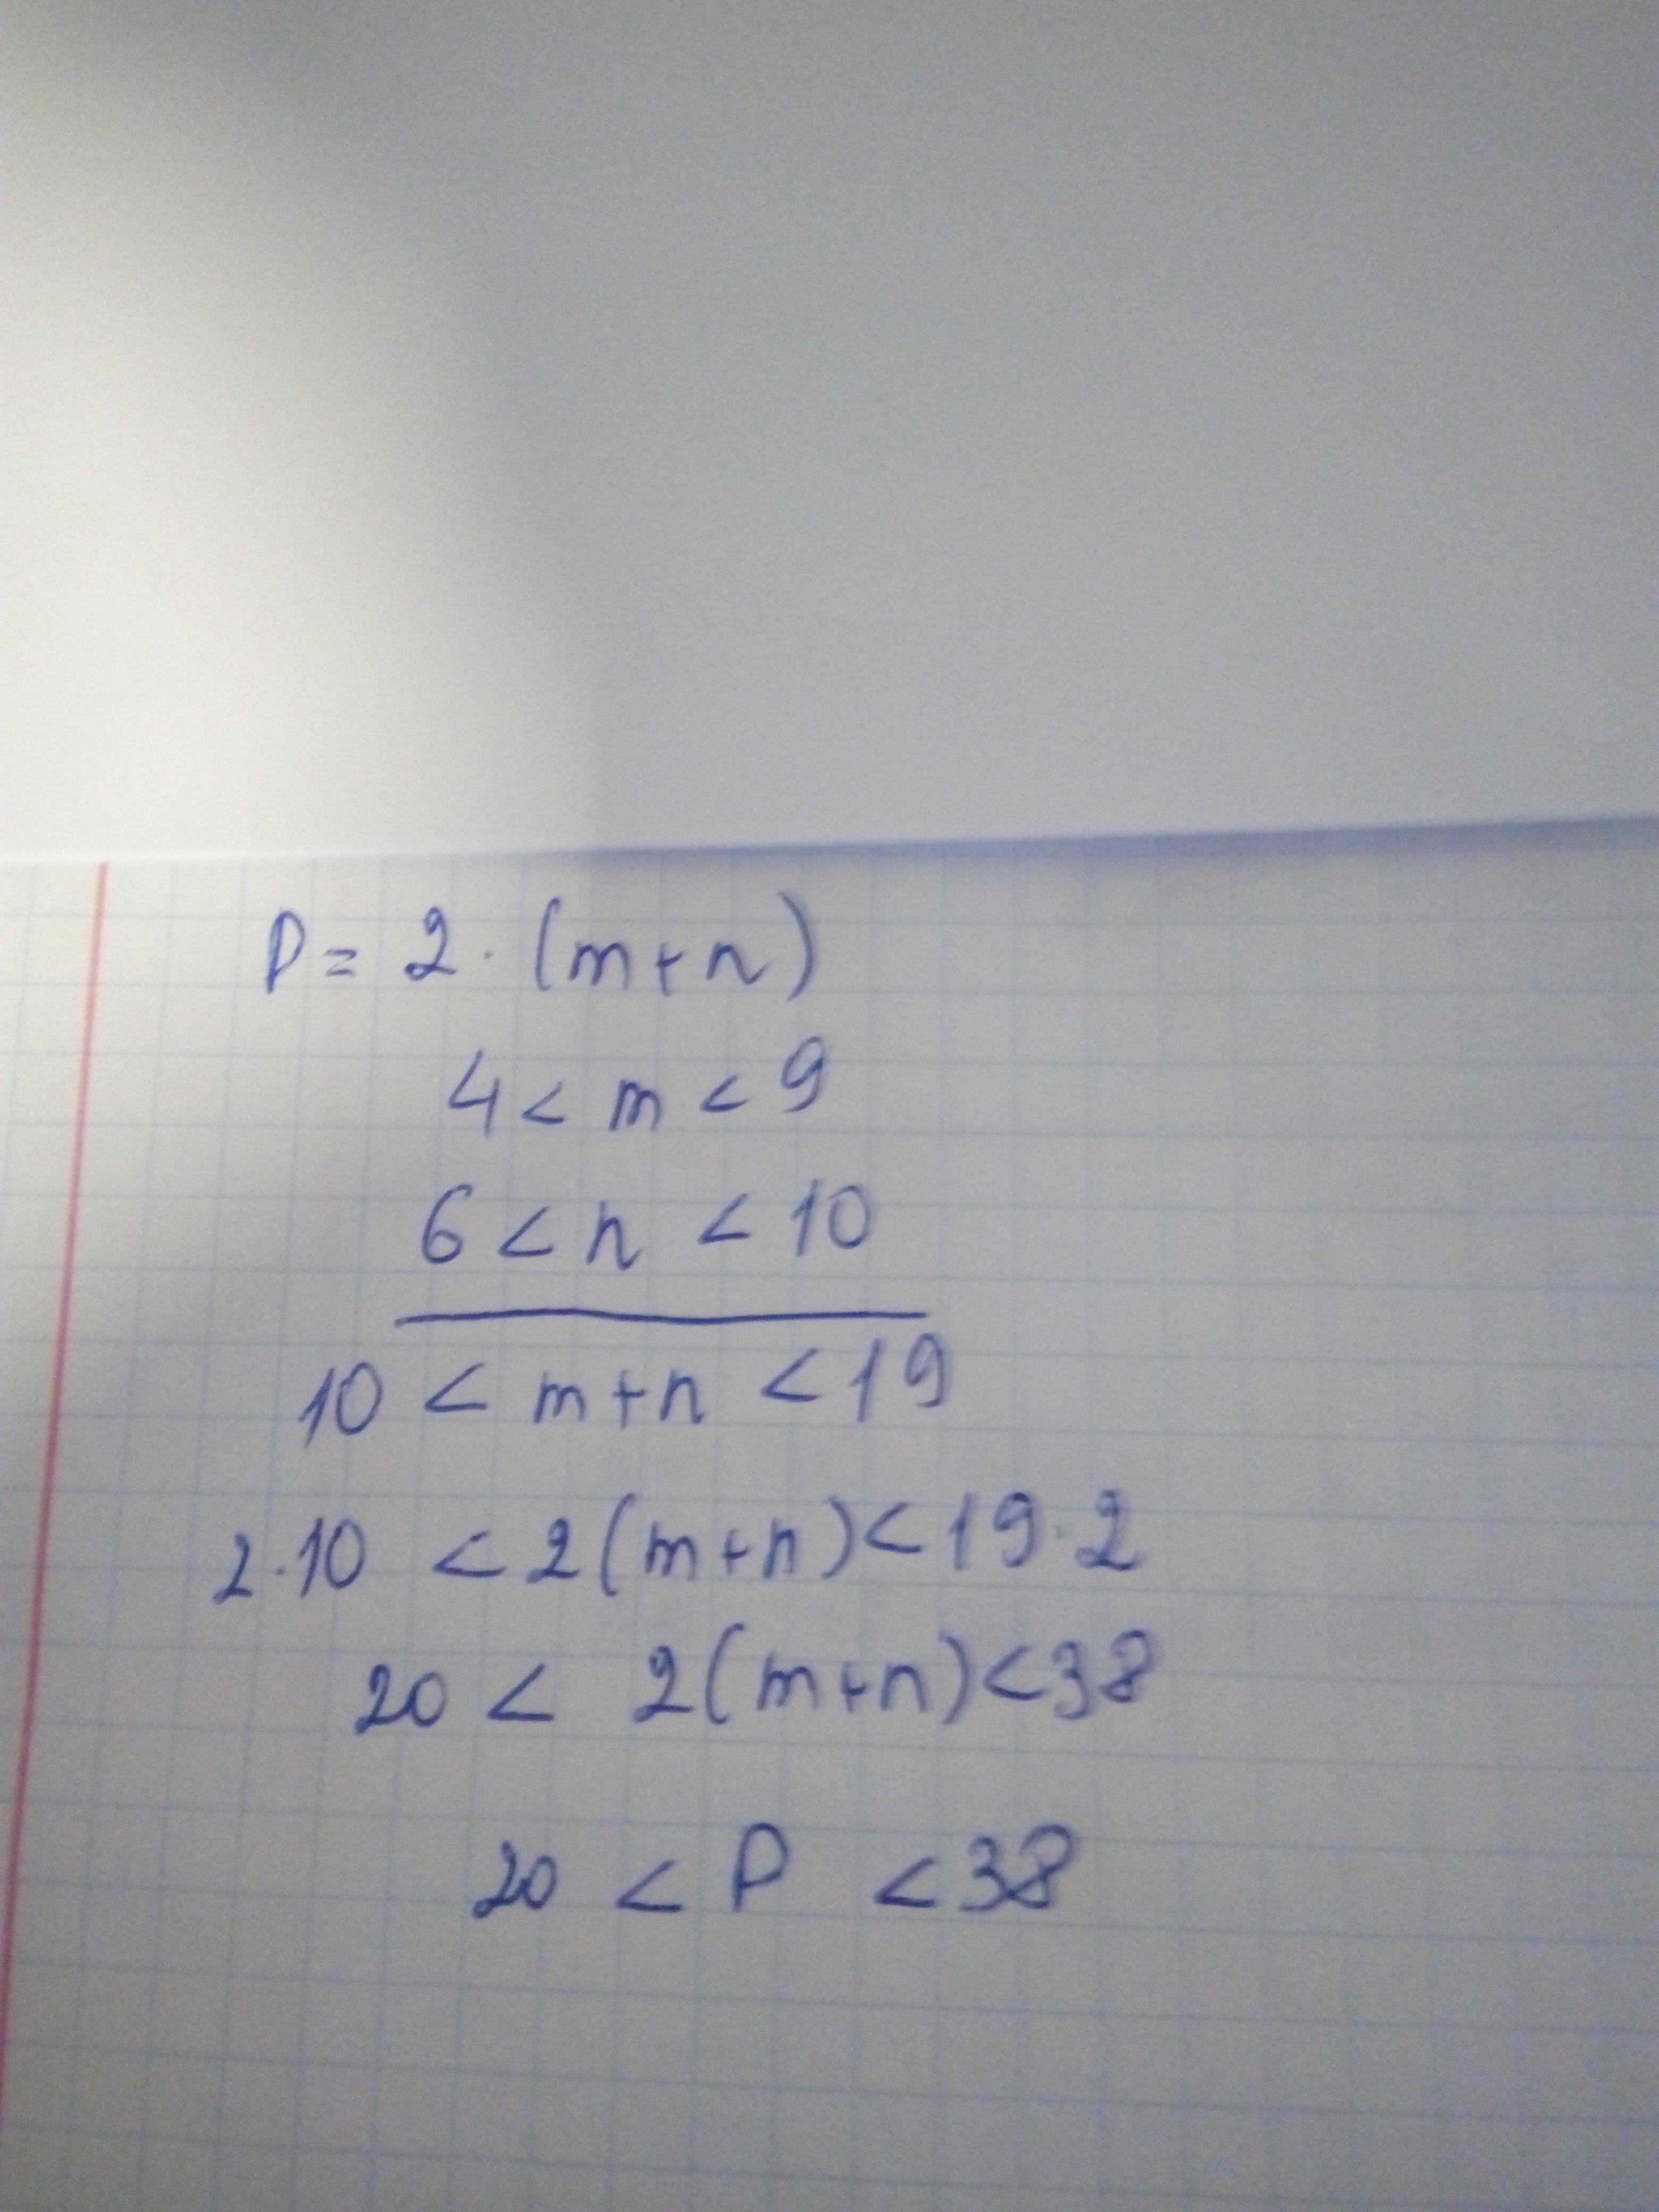 P = 2 · (m+n)
4 < m < 9
6 < n < 10
10 < m+n < 19
2·10 < 2(m+n) < 19·2
20 < 2(m+n) < 38
20 < P < 38